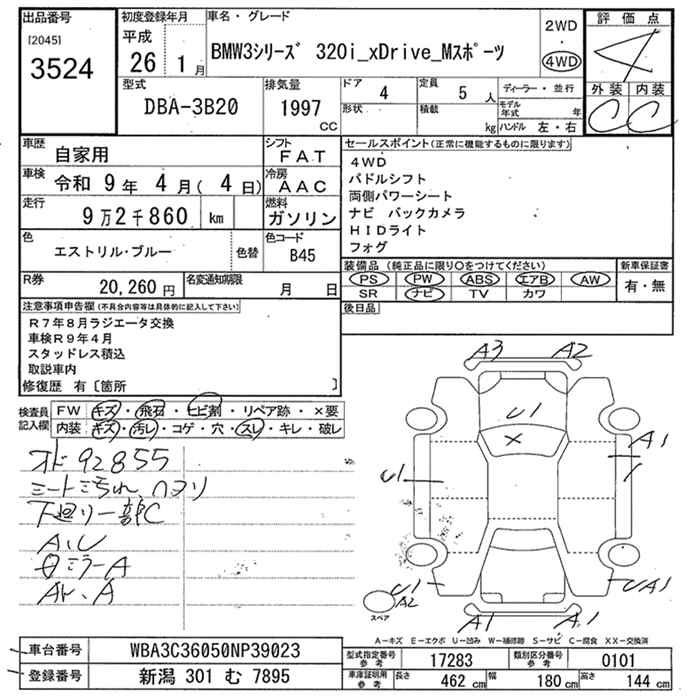 出品番号
[2045]
3524
初度登録年月
平成
26 1 月
車名・グレード
BMW3シリーズ 320i_xDrive_Mスポーツ
2WD
・
4WD
評価点
4
外装 内装
C C
型式
DBA-3B20
排気量
1997
CC
ドア
4
定員
5 人
形状
積載
kg
ディーラー・並行
モデル年式 年
ハンドル 左・右
車歴
自家用
シフト
FAT
車検
令和 9年 4月( 4日)
冷房
AAC
走行
9万2千860 km
燃料
ガソリン
色
エストリル・ブルー
色替
色コード
B45
R券
20,260円
名変通知期限
月 日
セールスポイント(正常に機能するものに限ります)
4WD
パドルシフト
両側パワーシート
ナビ バックカメラ
HIDライト
フォグ
装備品(純正品に限り○をつけてください)
PS・PW・ABS・エアB・AW
SR ナビ・TV・カワ
新車保証書
有・無
後日品
注意事項申告欄(不具合内容等は具体的に記入して下さい)
R7年8月ラジエータ交換
車検R9年4月
スタッドレス積込
取説車内
修復歴 有[箇所 ]
検査員記入欄
FW キズ・飛石・ヒビ割・リペア跡・×要
内装 キズ・汚レ・コゲ・穴・スレ・キレ・破レ
オド92855
シート汚れ、ハヌリ
下廻り一部C
A、U
ミラーA
AW、A
A3 A2
U1
×
A1
U1
U1
A2
UA1
A1 A1
スペア
A-キズ E-エクボ U-凹み W-補修跡 S-サビ C-腐食 XX-交換済
車台番号
WBA3C36050NP39023
登録番号
新潟 301 む 7895
型式指定番号 参考
17283
類別区分番号 参考
0101
車庫証明用 参考
長さ 462 cm 幅 180 cm 高さ 144 cm